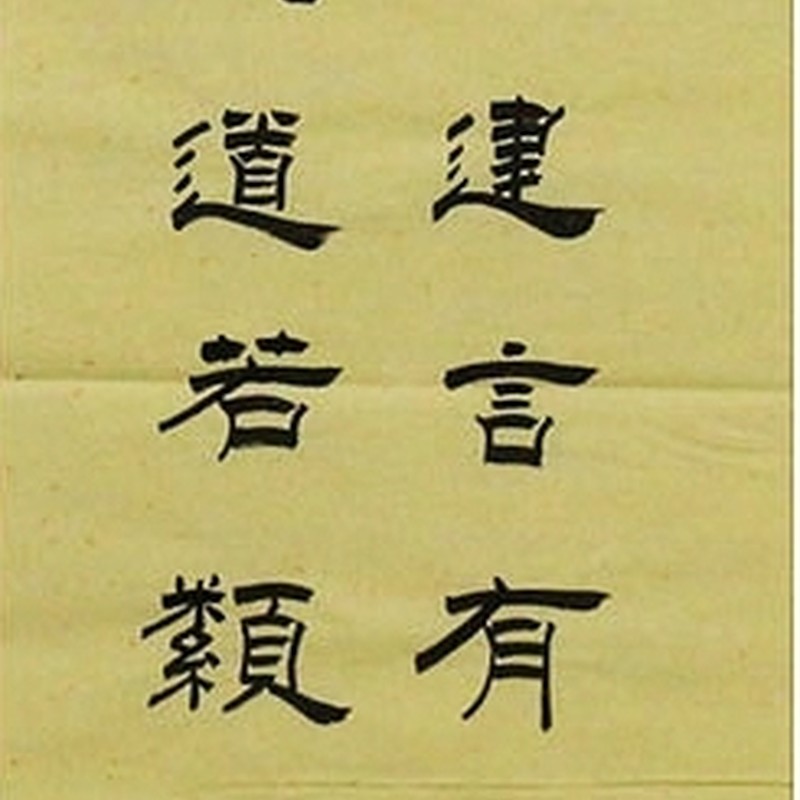 建言有
道若纇